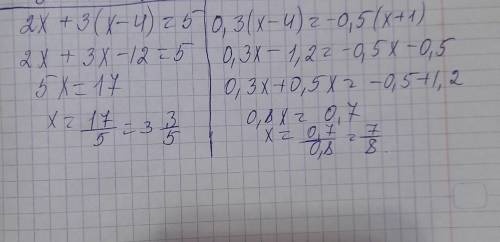 2x + 3(x-4) = 5
2x + 3x - 12 = 5
5x = 17
x = 17/5 = 3 3/5
0,3(x-4) = -0,5(x+1)
0,3x - 1,2 = -0,5x - 0,5
0,3x + 0,5x = -0,5 + 1,2
0,8x = 0,7
x = 0,7/0,8 = 7/8